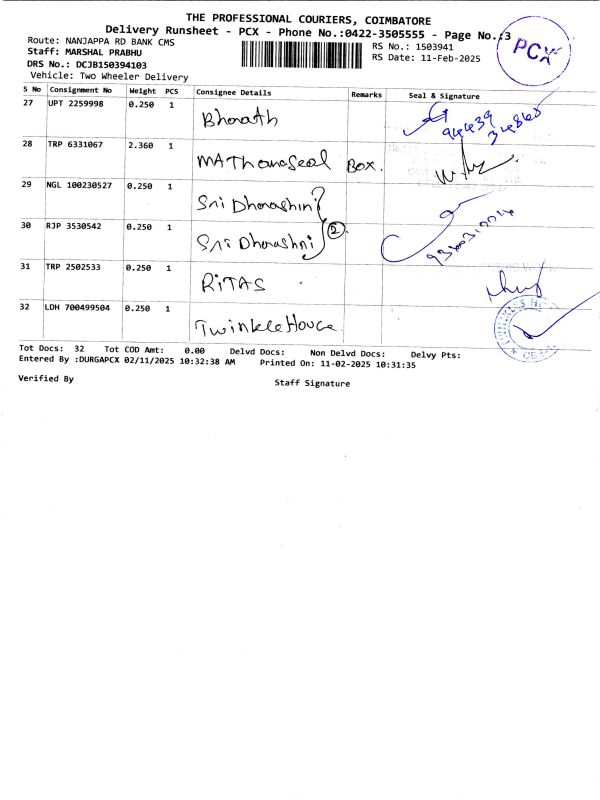 THE PROFESSIONAL COURIERS, COIMBATORE
Delivery Runsheet - PCX - Phone No.:0422-3505555 - Page No.:3
Route: NANJAPPA RD BANK CMS RS No.: 1503941
Staff: MARSHAL PRABHU RS Date: 11-Feb-2025
DRS No.: DCJB150394103
Vehicle: Two Wheeler Delivery
PCX
S No Consignment No Weight PCS Consignee Details Remarks Seal & Signature
27 UPT 2259998 0.250 1 Bharath 94439
34860
28 TRP 6331067 2.360 1 MAThanaseal Box.
29 NGL 100230527 0.250 1 Sri Dharashini
30 RJP 3530542 0.250 1 Sri Dharashni 2
31 TRP 2502533 0.250 1 RiTAS
32 LDH 700499504 0.250 1 TwinkleHouce
Tot Docs: 32 Tot COD Amt: 0.00 Delvd Docs: Non Delvd Docs: Delvy Pts:
Entered By :DURGAPCX 02/11/2025 10:32:38 AM Printed On: 11-02-2025 10:31:35
Verified By Staff Signature